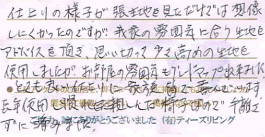 仕上りの様子が張生地を見ただけでは想像
しにくかったのですが我家の雰囲気に合う生地を
アドバイスを頂き、思い切って少々高めの生地を
使用しましたがお部屋の雰囲気もグレードアップ出来ました
とても良い仕上りに家族皆で喜んでいます。
長年使用し
ずに済みました。
ご協力、誠にありがとうございました (有)ティーズリビング